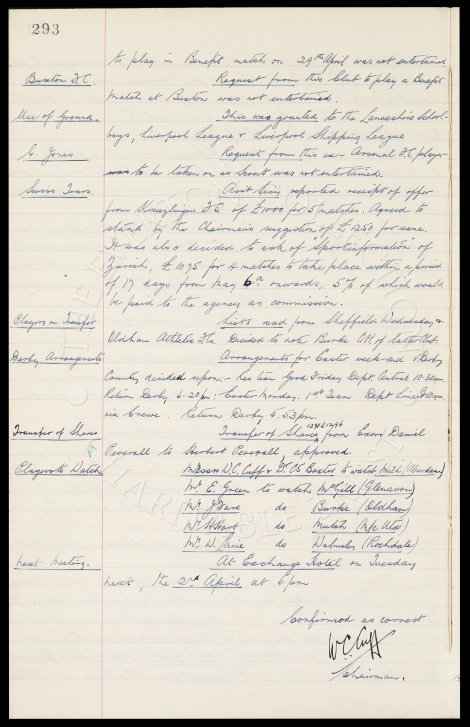 293
to play in Benefit match on 29th April was not entertained
Buxton F.C. Request from this Club to play a Benefit
match at Buxton was not entertained.
Use of Ground. This was granted to the Lancashire School-
boys, Liverpool League & Liverpool Shipping League
C. Jones Request from this ex-Arsenal F.C. player
to be taken on as Scout was not entertained.
Swiss Tours. Asst Secy reported receipt of offer
from Kreuzlingen F.C. of £1000 for 5 matches. Agreed to
stand by the Chairman's suggestion of £1250 for same.
It was also decided to ask of "Sportinformation" of
Zurich, £1075 for 4 matches to take place within a period
of 17 days from May 6th onwards, 5% of which would
be paid to the agency as commission.
Players on Transfer Lists read from Sheffield Wednesday &
Oldham Athletic FCs. Decided to note Burke C.H. of latter club.
Derby Arrangements Arrangements for Easter week-end v Derby
County decided upon:- Res team Good Friday Dept. Central 10-30am
Return Derby 6-20pm:- Easter Monday. 1st Team Dept Lime St
via Crewe. Return Derby 5.53pm.
Transfer of Shares Transfer of Shares from Exors Daniel
Peverall to Herbert Peverall, approved.
Players to Watch Messrs W.C. Cuff & Dr CS Baxter to watch Mills (Aberdeen)
Mr E. Green to watch McGill (Glenavon)
Mr J. Fare do Burke (Oldham)
Mr W. Hart do Mutch (M/c Utd)
Mr W. do Walmsley (Rochdale)
next meeting. At Exchange Hotel on Tuesday
next, the 2nd April at 6pm
Confirmed as correct
W.C. Cuff
Chairman.